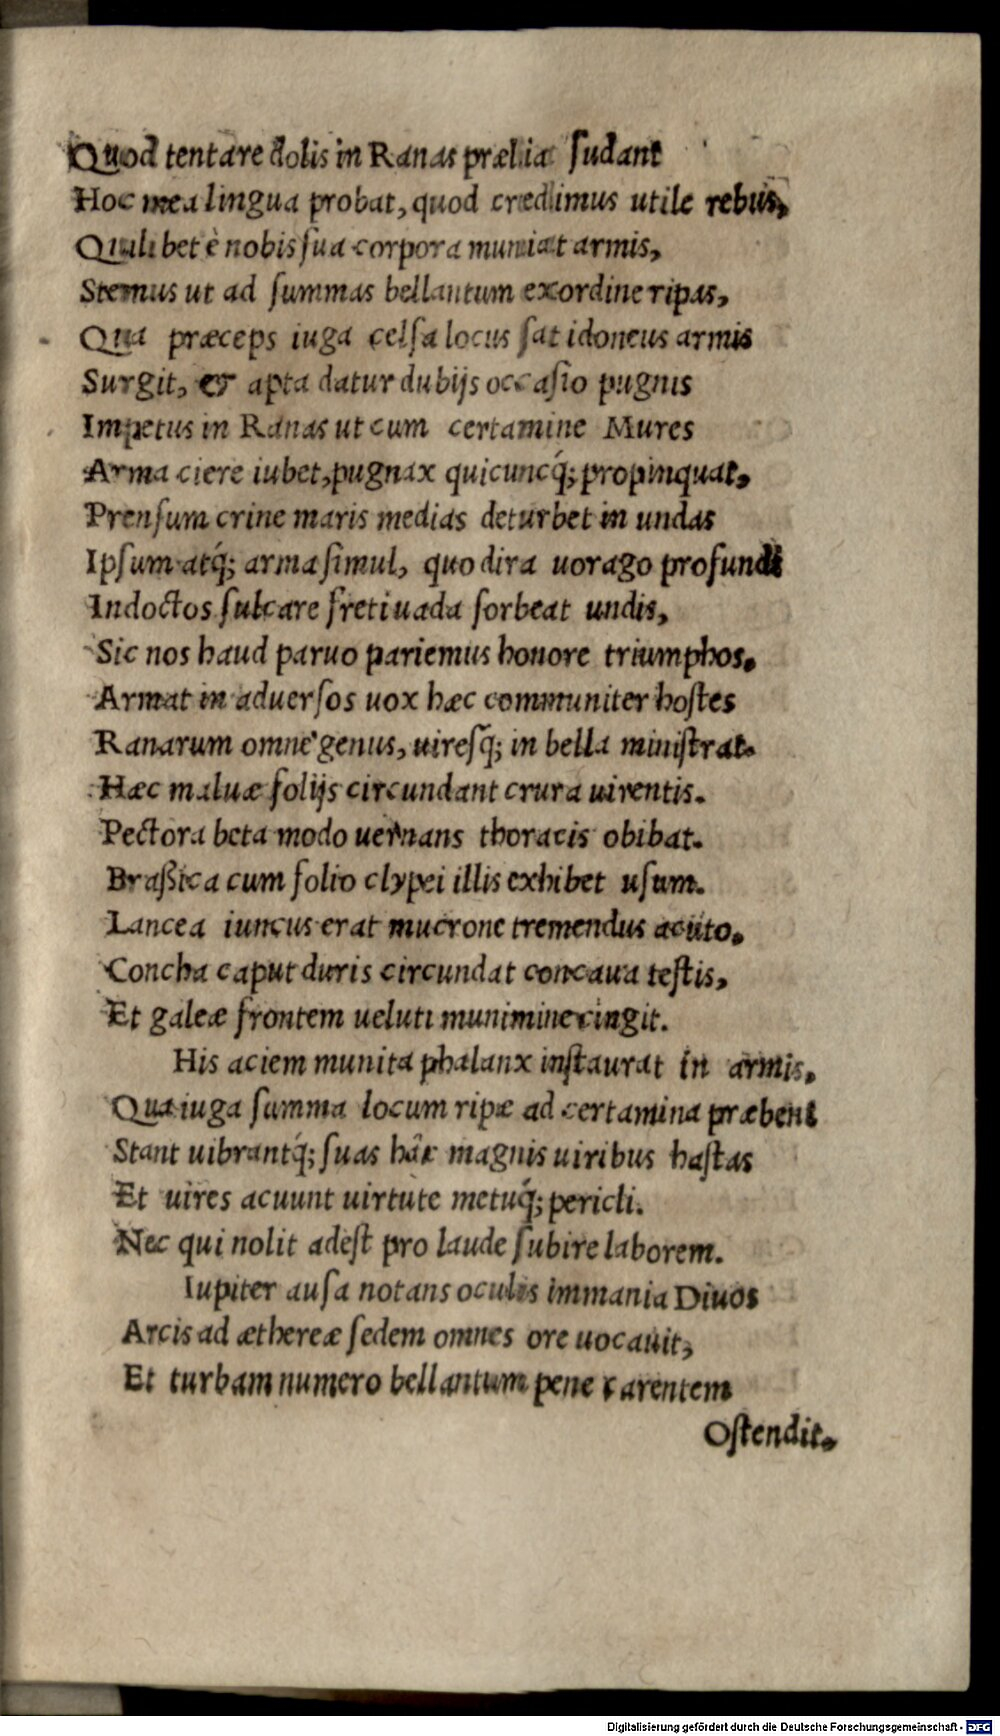 Quod tentare dolis in Ranas prælia sudant
Hoc mea lingua probat, quod credimus utile rebus,
Quilibet è nobis sua corpora muniat armis,
Stemus ut ad summas bellantum exordine ripas,
Qua præceps iuga celsa locus sat idoneus armis
Surgit, & apta datur dubijs occasio pugnis
Impetus in Ranas ut cum certamine Mures
Arma ciere iubet, pugnax quicuncq́; propinquat,
Prensum crine maris medias deturbet in undas
Ipsum atq́; arma simul, quo dira uorago profundi
Indoctos sulcare freti uada sorbeat undis,
Sic nos haud paruo pariemus honore triumphos.
Armat in aduersos uox hæc communiter hostes
Ranarum omne genus, uiresq́; in bella ministrat.
Hæc maluæ folijs circundant crura uirentis.
Pectora beta modo uernans thoracis obibat.
Braßica cum folio clypei illis exhibet usum.
Lancea iuncus erat mucrone tremendus acuto.
Concha caput duris circundat concaua testis,
Et galeæ frontem ueluti munimine cingit.
His aciem munita phalanx instaurat in armis.
Qua iuga summa locum ripæ ad certamina præbent
Stant uibrantq́; suas hâc magnis uiribus hastas
Et uires acuunt uirtute metuq́; pericli.
Nec qui nolit adest pro laude subire laborem.
Iupiter ausa notans oculis immania Diuos
Arcis ad æthereæ sedem omnes ore uocauit,
Et turbam numero bellantum pene carentem
Ostendit,
Digitalisierung gefördert durch die Deutsche Forschungsgemeinschaft - DFG